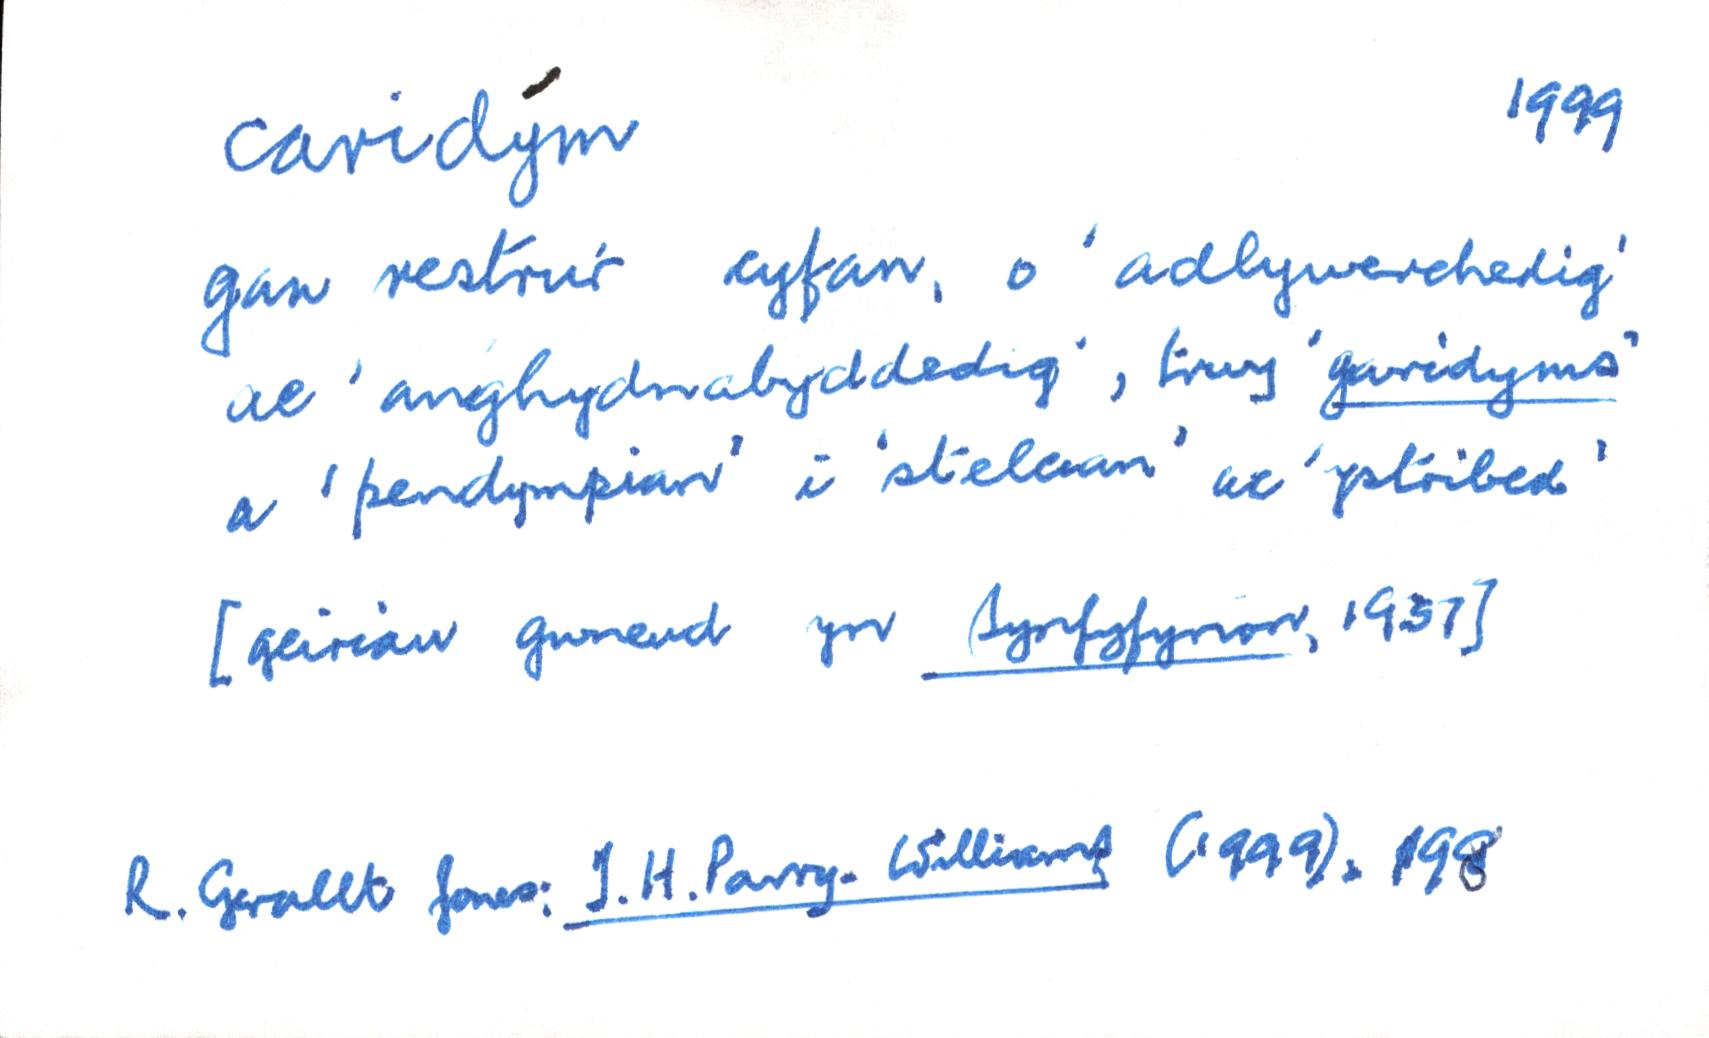 caridým 1999
gan restru'r cyfan, o 'adlywerchedig'
ac 'anghydnabyddedig', trwy 'garidyms'
a 'pendympian' i 'stelcian' ac 'ystribed'
[geiriau gwneud yn Synfyfyrion, 1937]
R. Gerallt Jones: T.H. Parry-Williams (1999). 198